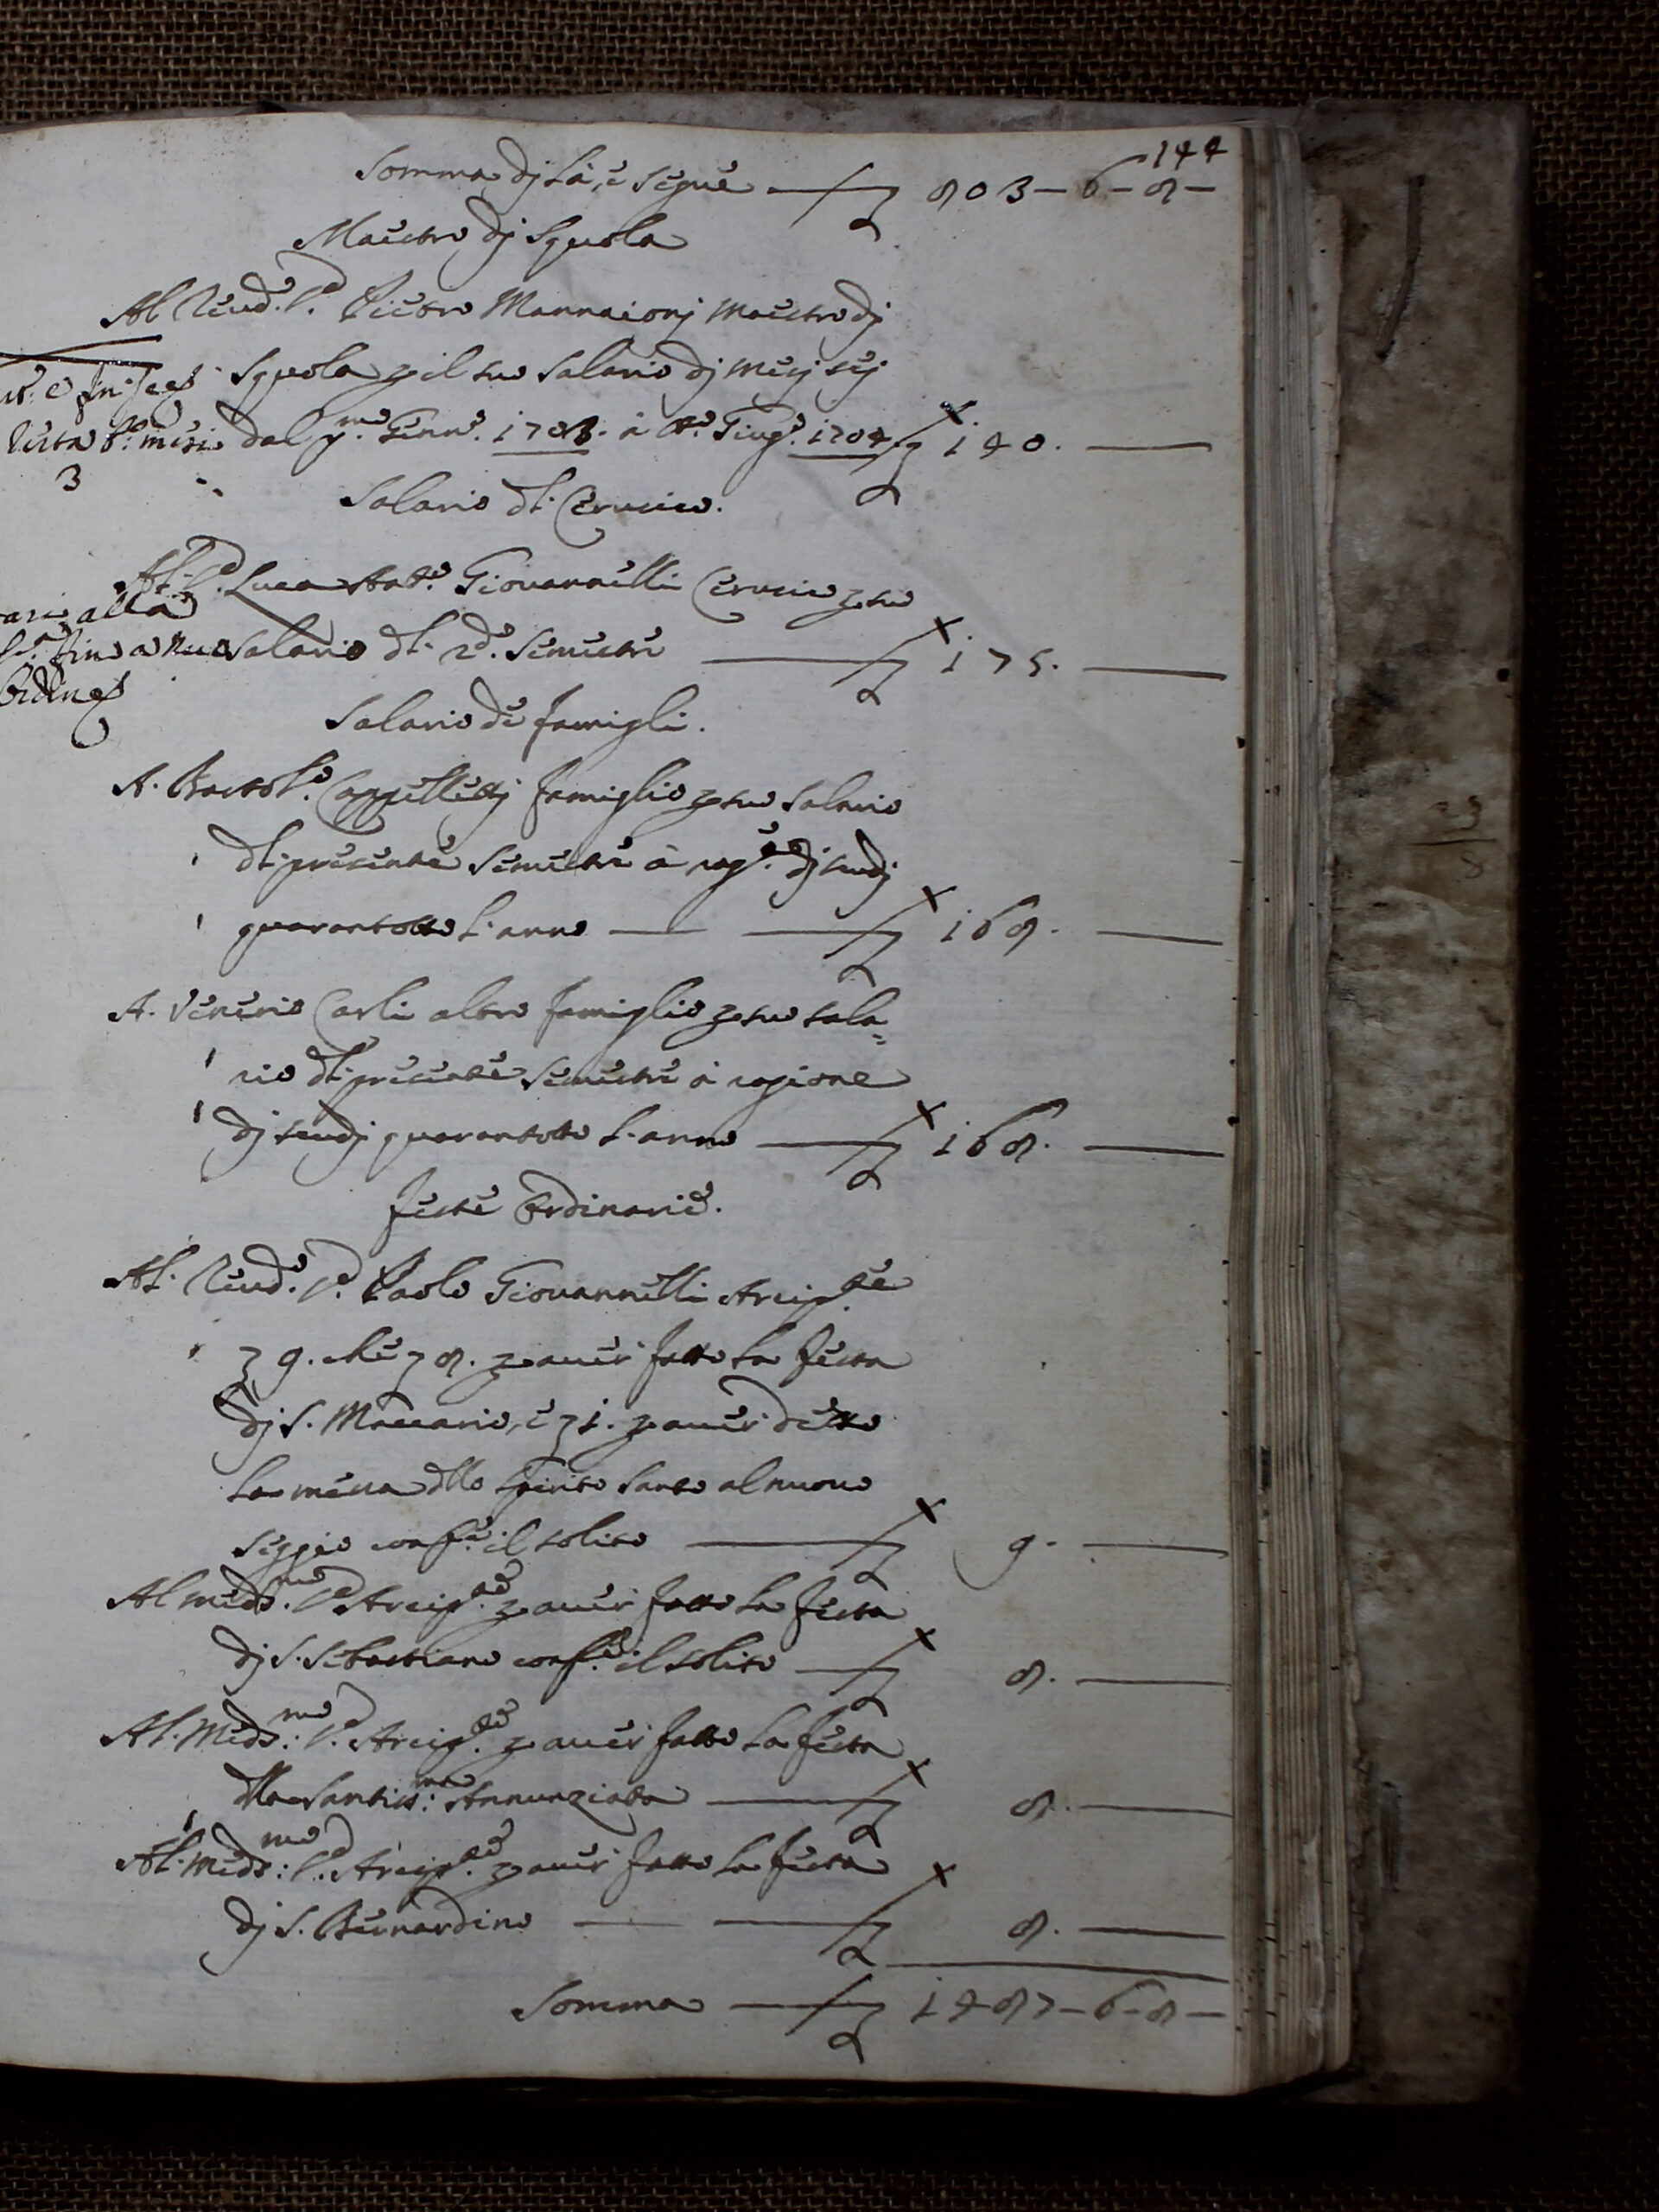 144
Somma dj là, è segue — 803 – 6 – 8 –
Maestro dj Squola
Al Reud.º S.r Pietro Mannaionj Maestro dj
Squola p il suo salario dj mesj sej
dal p.mo Genn.º 1704. à tt.º Giug.º 1704 — 140. —
3
Salario dl Cerusico.
Al S.r Luca Ant.º Giovannelli Cerusico p suo
salario dl sd.º Semestre — 175. —
alla
fino a
Salario de famigli.
A Bartol.º Cappellettj famiglio p suo salario
dl presente semestre à rag.e dj scudj
quarantotto l'anno — 168. —
A Venerio Carli altro famiglio p suo sala=
rio dl presente semestre à ragione
dj scudj quarantotto l'anno — 168. —
feste Ordinarie.
Al Reud.º S.r Paolo Giovannelli Arcip.te
9. che 8. p auer fatto la festa
dj S. Maccario, è 1. p auer detto
la messa dllo Spirito Santo al nuouo
seggio conf.e il solito — 9. —
Al med.mo S.r Arcip.te p auer fatto la festa
dj S. Sebastiano conf.e il solito — 8. —
Al Med.mo S.r Arcip.te p auer fatto la festa
dlla Santiss.ma Annunziata — 8. —
Al Med.mo S.r Arcip.te p auer fatto la festa
dj S. Bernardino — 8. —
Somma — 1487 – 6 – 8 –